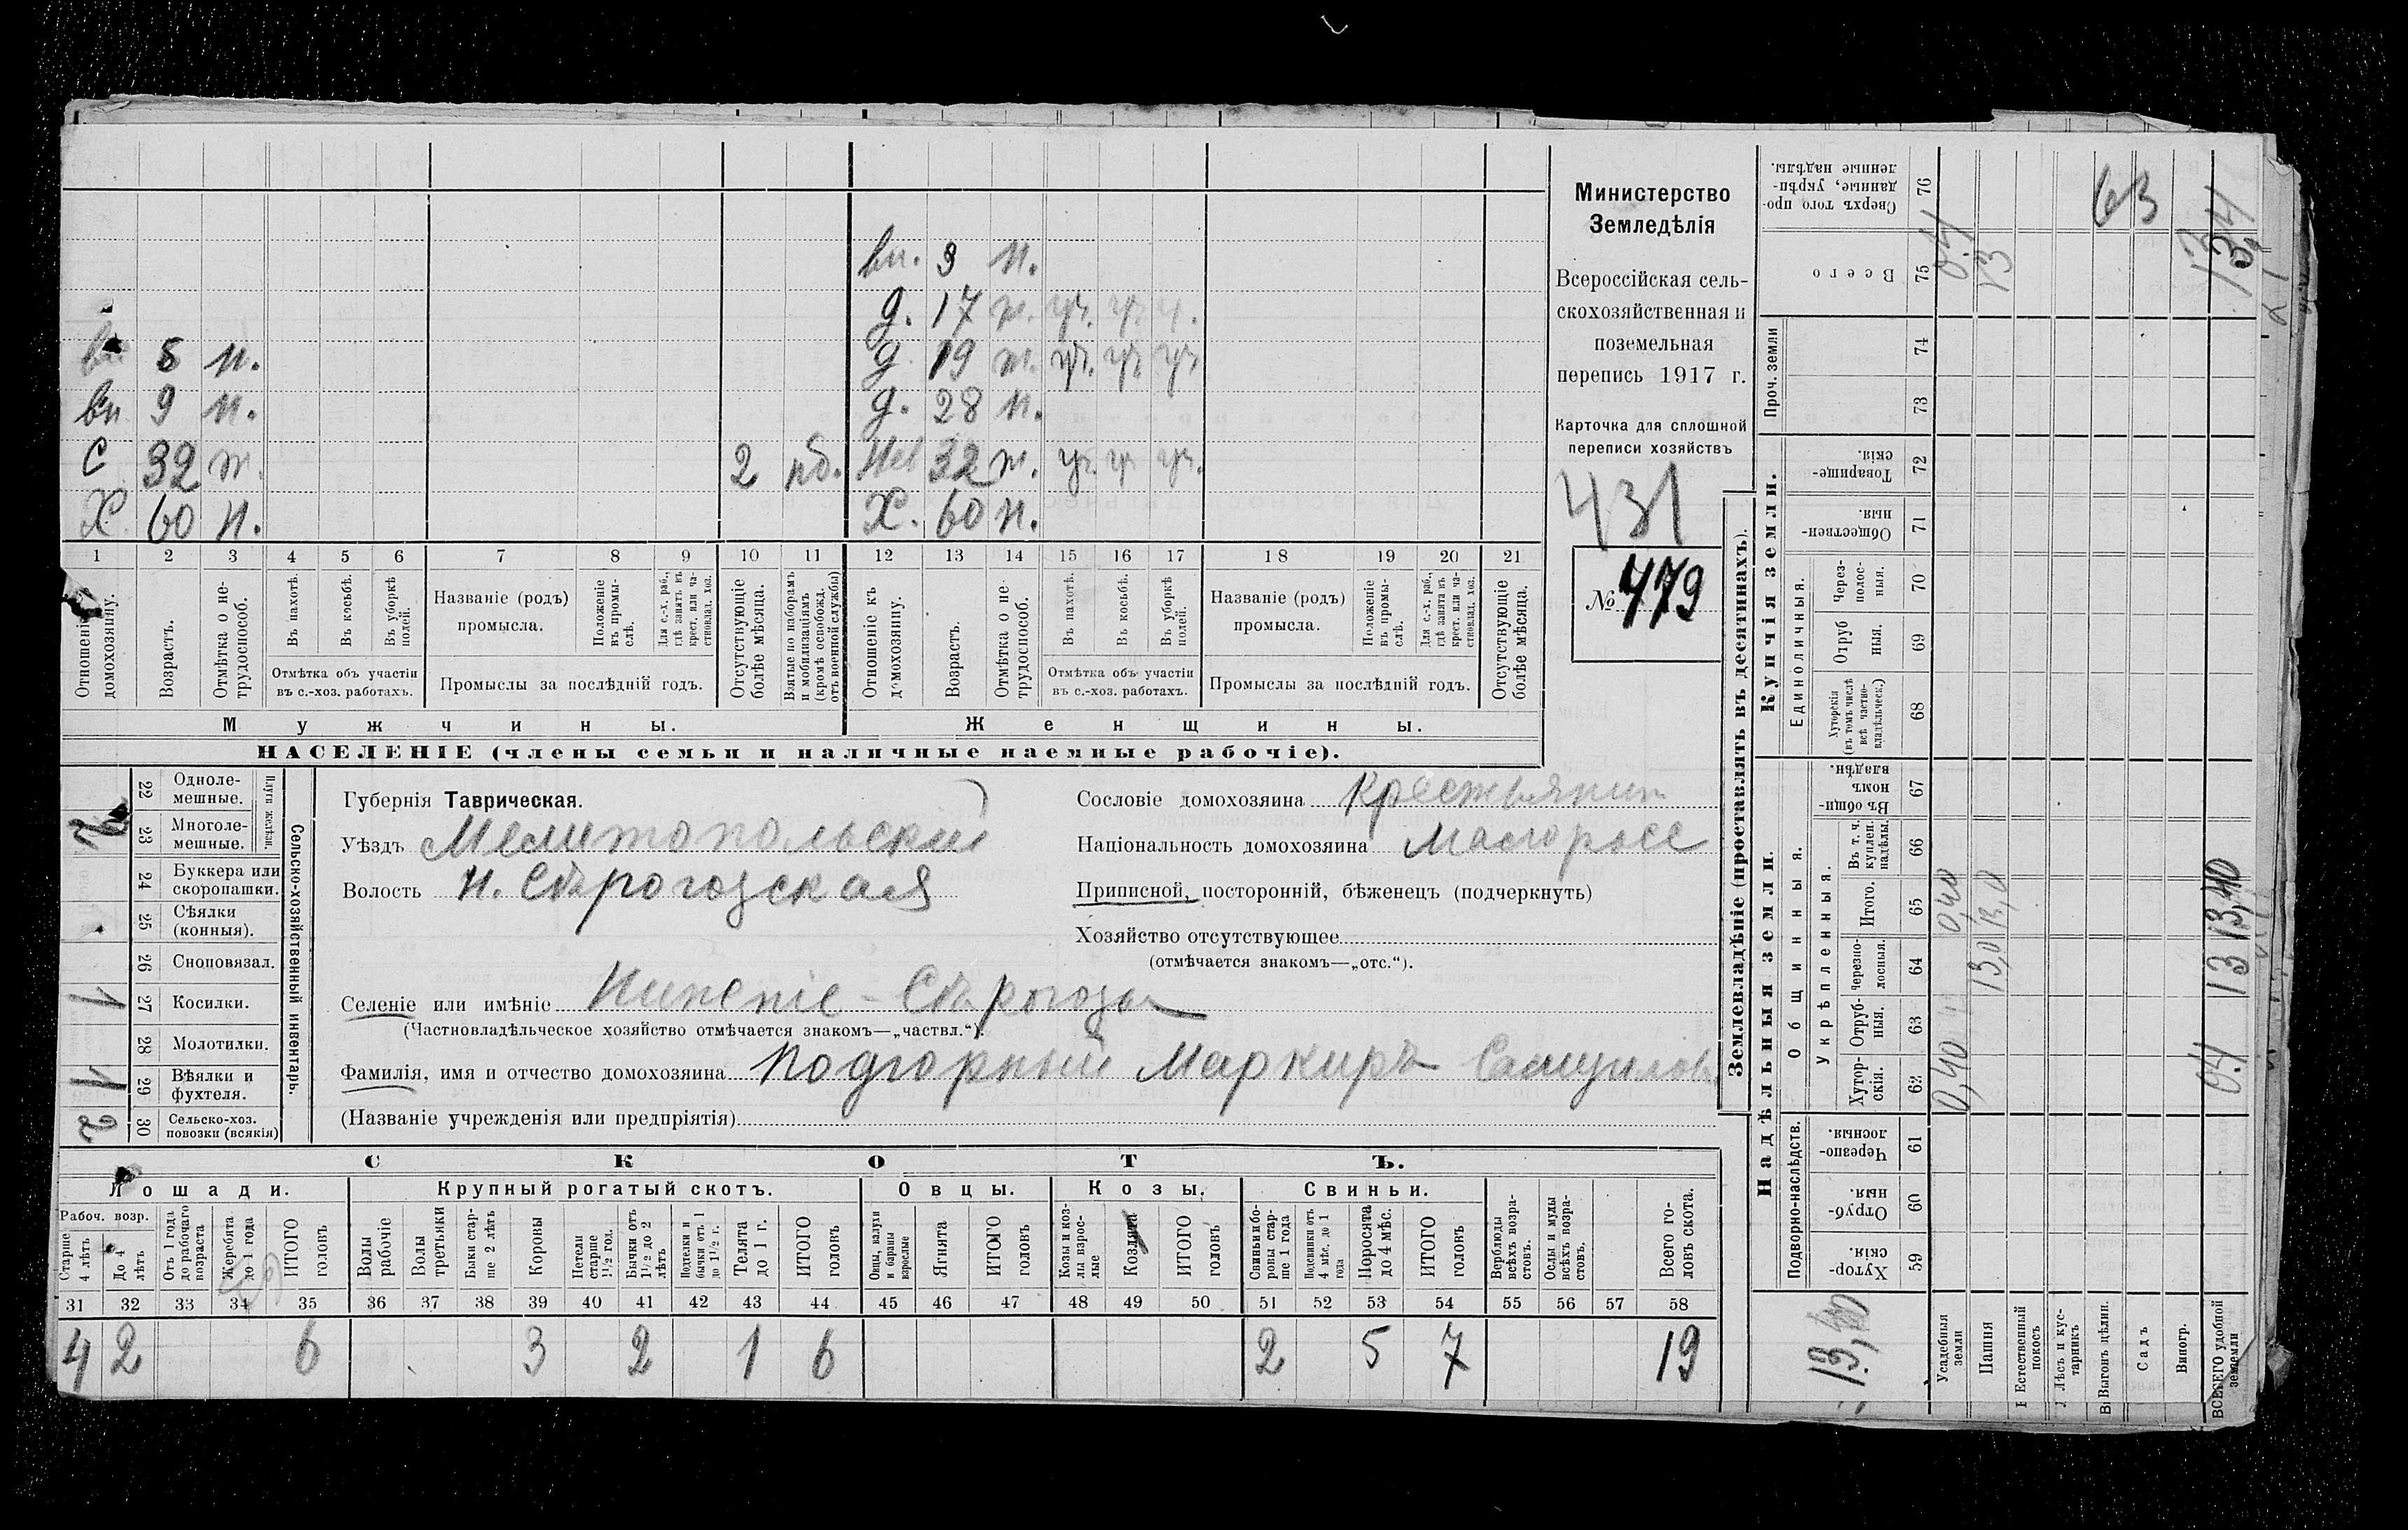 вн. 9 н.
д. 17 т. уч. уч. уч.
5 н. д. 19 т. уч. уч. уч.
вн 9 н. д. 28 н.
С 32 т. 2 нб. Нев 32 т. уч. уч. уч.
Х 60 н. Х. 60 н.
1 2 3 4 5 6 7 8 9 10 11 12 13 14 15 16 17 18 19 20 21
Отношеніе къ домохозяину.
Возрастъ.
Отмѣтка о не-трудоспособ.
Въ пахотѣ.
Въ косьбѣ.
Въ уборкѣ полей.
Отмѣтка объ участіи въ с.-хоз. работахъ.
Названіе (родъ) промысла.
Положеніе въ промы-слѣ.
Для с.-х. раб., гдѣ занятъ въ крест. или ча-стновлад. хоз.
Промыслы за послѣдній годъ.
Отсутствующіе болѣе мѣсяца.
Взятые по наборамъ и мобилизаціямъ (кромѣ освобожд. отъ военной службы)
Отношеніе къ домохозяину.
Возрастъ.
Отмѣтка о не-трудоспособ.
Въ пахотѣ.
Въ косьбѣ.
Въ уборкѣ полей.
Отмѣтка объ участіи въ с.-хоз. работахъ.
Названіе (родъ) промысла.
Положеніе въ промы-слѣ.
Для с.-х. раб., гдѣ занята въ крест. или ча-стновлад. хоз.
Промыслы за послѣдній годъ.
Отсутствующіе болѣе мѣсяца.
Мужчины. Женщины.
НАСЕЛЕНІЕ (члены семьи и наличные наемные рабочіе).
Министерство
Земледѣлія
Всероссійская сель-
скохозяйственная и
поземельная
перепись 1917 г.
Карточка для сплошной
переписи хозяйствъ
431
№ 479
Сельско-хозяйственный инвентарь.
Плуги желѣзн.
22 Одноле-мешные.
2 23 Многоле-мешные.
24 Буккера или скоропашки.
25 Сѣялки (конныя).
26 Сноповязал.
1 27 Косилки.
28 Молотилки.
1 29 Вѣялки и фухтеля.
2 30 Сельско-хоз. повозки (всякія)
Губернія Таврическая.
Уѣздъ Мелитопольскій
Волость Н. Сѣрогозская
Сословіе домохозяина Крестьянин
Національность домохозяина Малоросс
Приписной, посторонній, бѣженецъ (подчеркнуть)
Хозяйство отсутствующее
(отмѣчается знакомъ—„отс.“).
Селеніе или имѣніе Нижніе-Сѣрогозы
(Частновладѣльческое хозяйство отмѣчается знакомъ—„частвл.“).
Фамилія, имя и отчество домохозяина Подгорный Маркиръ Самуилов
(Названіе учрежденія или предпріятія)
СКОТЪ.
Лошади. Крупный рогатый скотъ. Овцы. Козы. Свиньи.
Рабоч. возр.
Старше 4 лѣтъ
До 4 лѣтъ
Отъ 1 года до рабочаго возраста
Жеребята до 1 года
ИТОГО головъ
Волы рабочіе
Волы третьяки
Быки стар-ше 2 лѣтъ
Коровы
Нетели старше 1½ год.
Бычки отъ 1½ до 2 лѣтъ
Подтелки и бычки отъ 1 до 1½ г.
Телята до 1 г.
ИТОГО головъ
Овцы, валухи и бараны взрослые
Ягнята
ИТОГО головъ
Козы и коз-лы взрос-лые
Козлята
ИТОГО головъ
Свиньи и бо-ровы стар-ше 1 года
Подсвинки отъ 4 мѣс. до 1 года
Поросята до 4 мѣс.
ИТОГО головъ
Верблюды всѣхъ возра-стовъ.
Ослы и мулы всѣхъ возра-стовъ.
Всего го-ловъ скота.
31 32 33 34 35 36 37 38 39 40 41 42 43 44 45 46 47 48 49 50 51 52 53 54 55 56 57 58
4 2 6 3 2 1 6 2 5 7 19
Землевладѣніе (проставлять въ десятинахъ).
Надѣльныя земли. Купчія земли.
Подворно-наслѣдств.
Общинныя.
Укрѣпленныя.
Единоличныя.
Проч. земли
59 Хутор-скія.
60 Отруб-ныя.
61 Черезпо-лосныя.
62 Хутор-скія.
63 Отруб-ныя.
64 Черезпо-лосныя.
65 Итого.
66 Въ т. ч. куплен. надѣлы.
67 Въ общи-номъ владѣн.
68 Хуторскія (въ томъ числѣ всѣ частно-владѣльческ.)
69 Отруб ныя.
70 Через-полос-ныя.
71 Обществен-ныя.
72 Товарище-скія.
73
74
75 Всего
76 Сверхъ того про-данные, укрѣп-ленные надѣлы.
13,40
Усадебныя земли 0,40 0,40 0,4
Пашня 13,0 13,0 13
Естественный покосъ
Лѣсъ и кус-тарникъ
Выгонъ цѣлин. 63
Садъ
Виногр.
ВСЕГО удобной земли 0,4 13 13,40 13,4